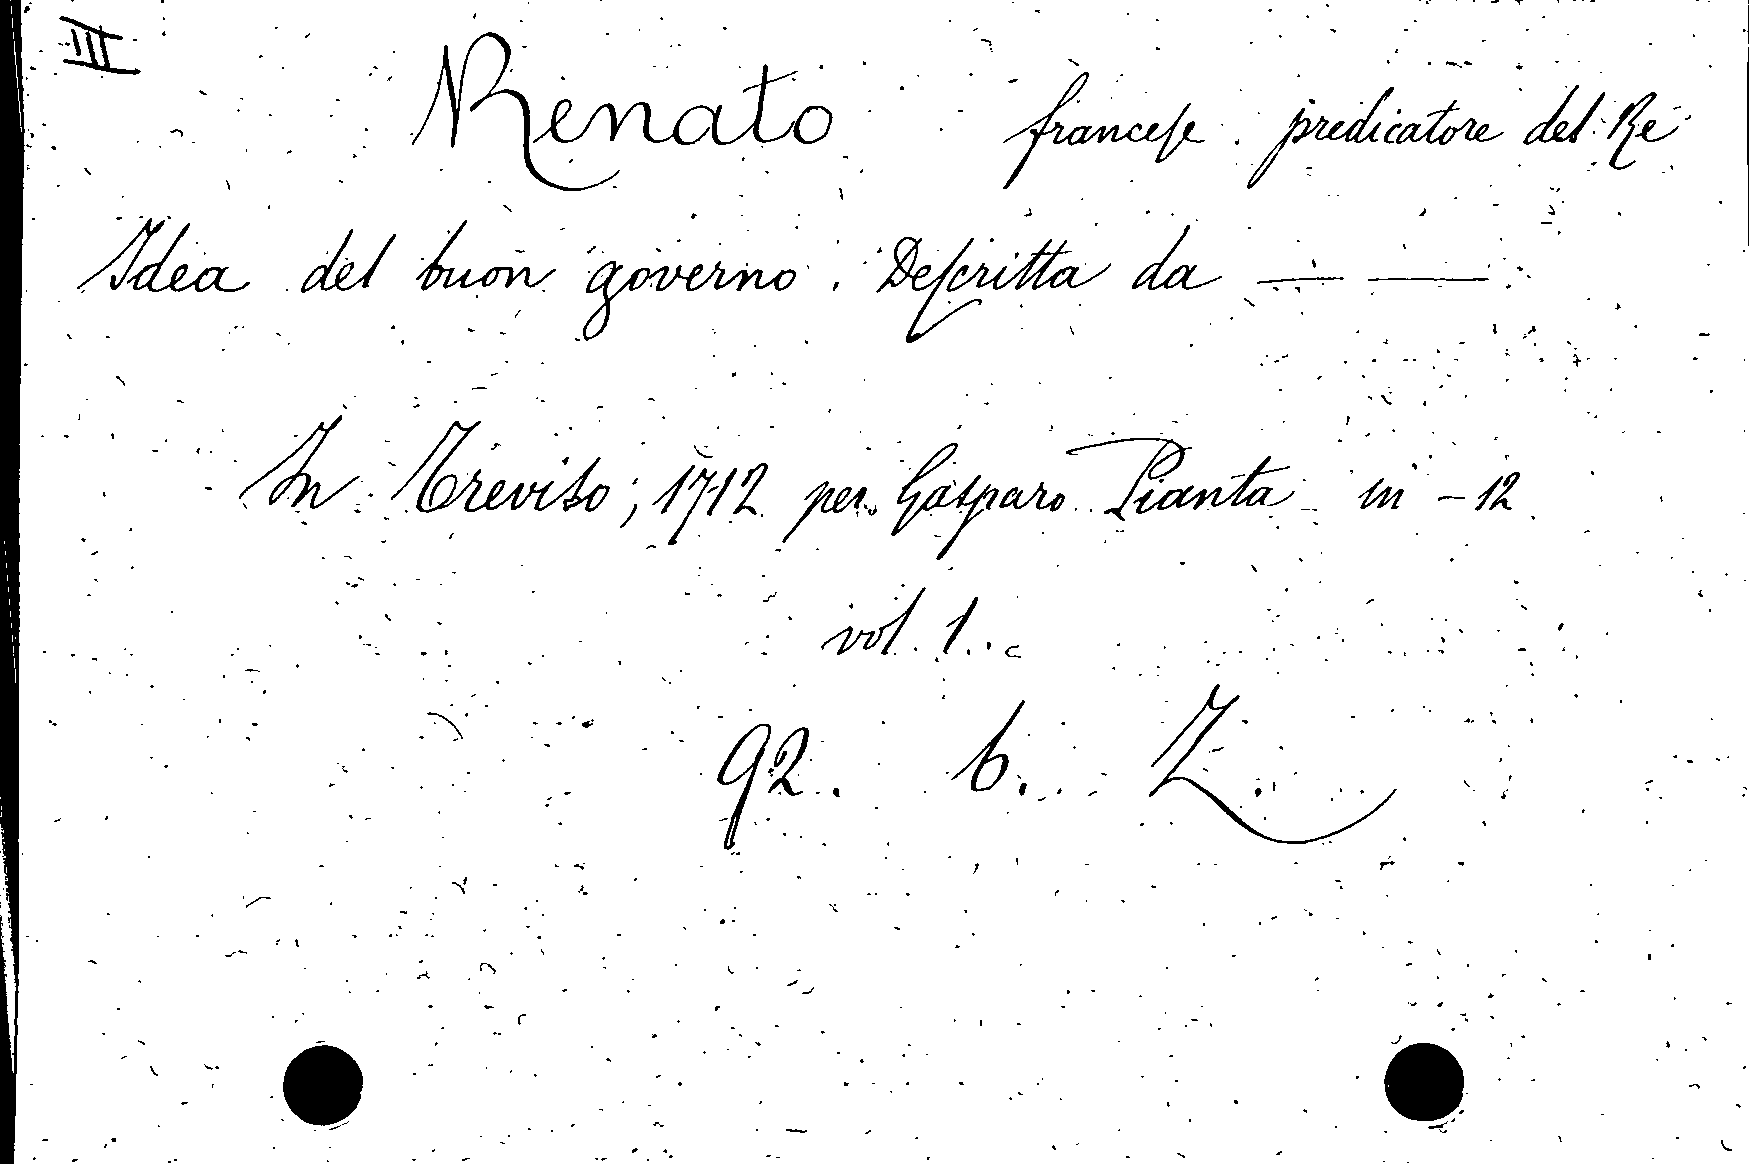 III
Renato franceſe predicatore del Re
Idea del buon governo. Deſcritta da — —
In Treviso, 1712 per Gasparo Pianta in -12
vol. 1.
92. b. Z.